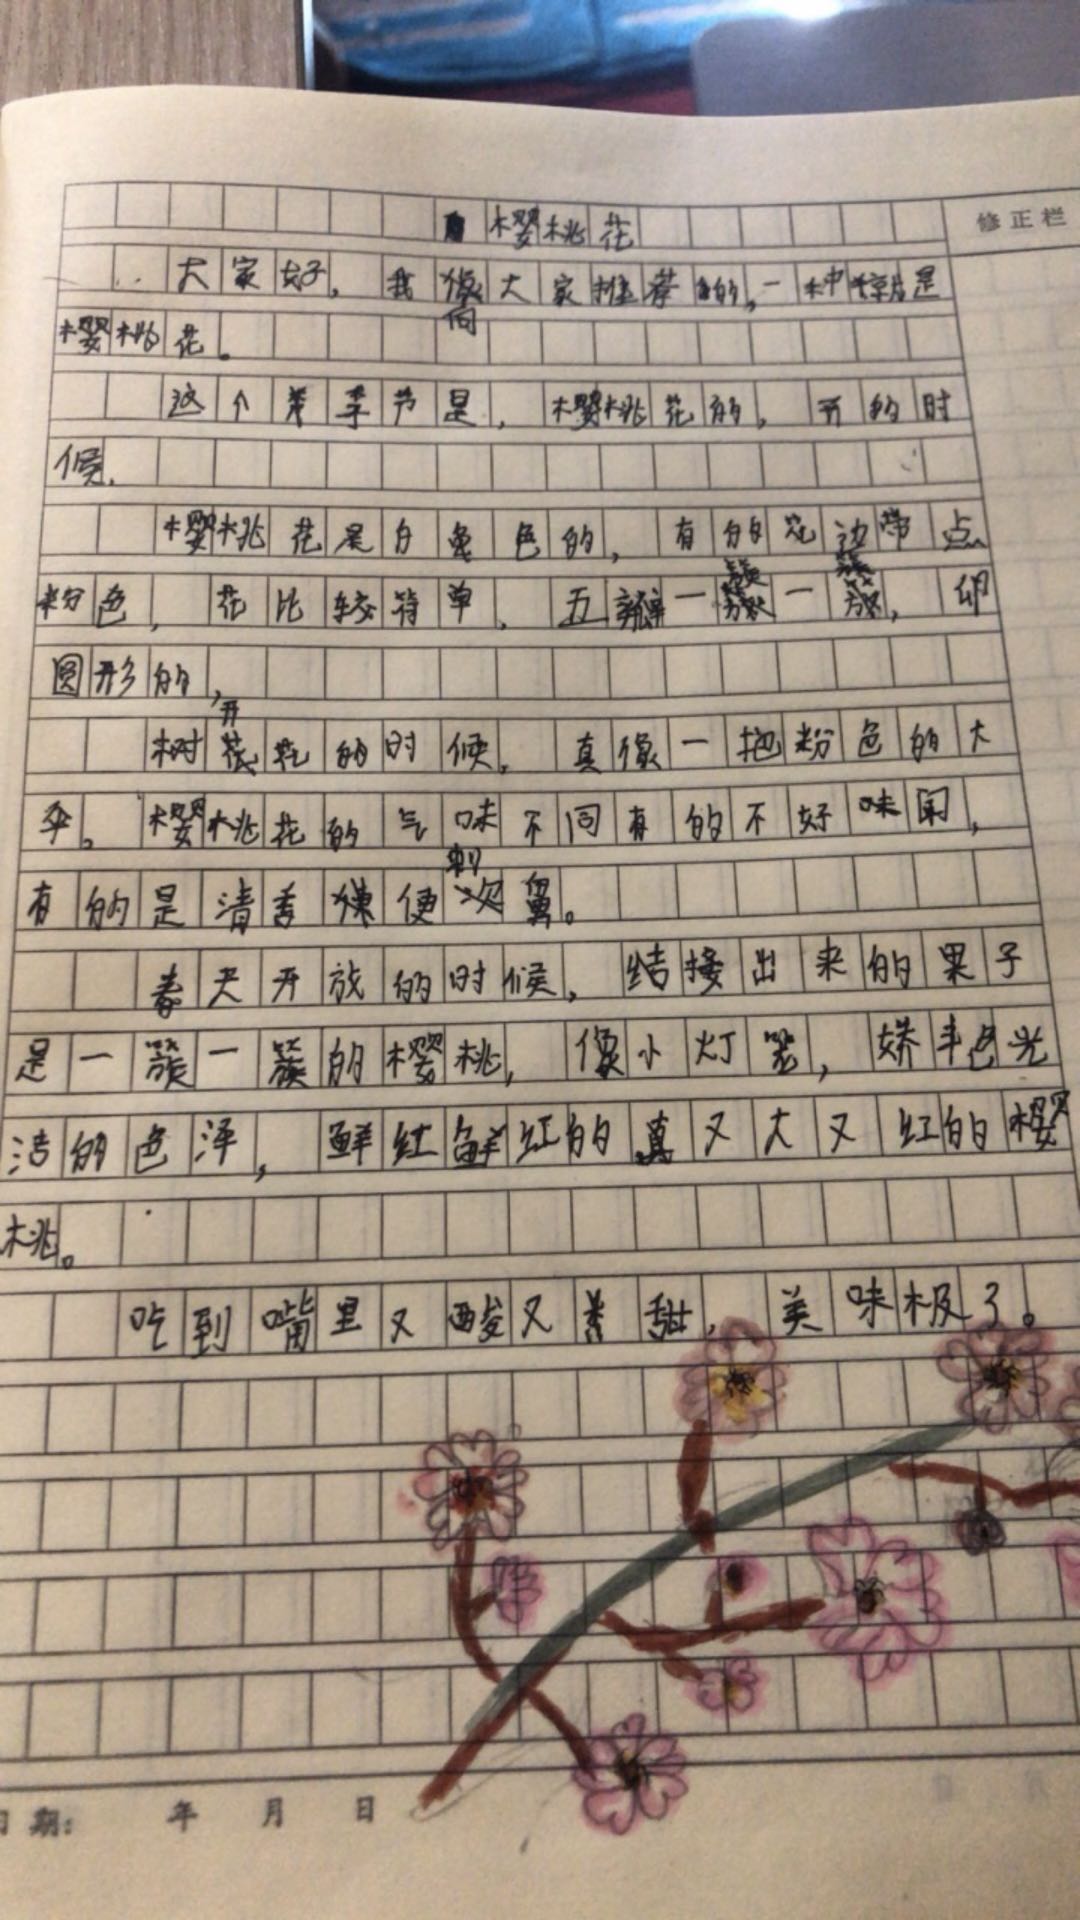 樱桃花
修正栏
大家好，我像大家推荐的，一种就是
向
樱桃花。
这个季节是，樱桃花的，开的时
候，
樱桃花是白色的，有的花边带点
粉色，花比较简单，五瓣一簇一簇，卵
圆形的，
开
树花的时候，真像一把粉色的大
伞。樱桃花的气味不同有的不好味闻，
刺
有的是清香便次鼻。
春天开放的时候，结接出来的果子
是一簇一簇的樱桃，像小灯笼，娇丰色光
洁的色泽，鲜红鲜红的真又大又红的樱
桃。
吃到嘴里又酸又甜，美味极了。
日期： 年 月 日